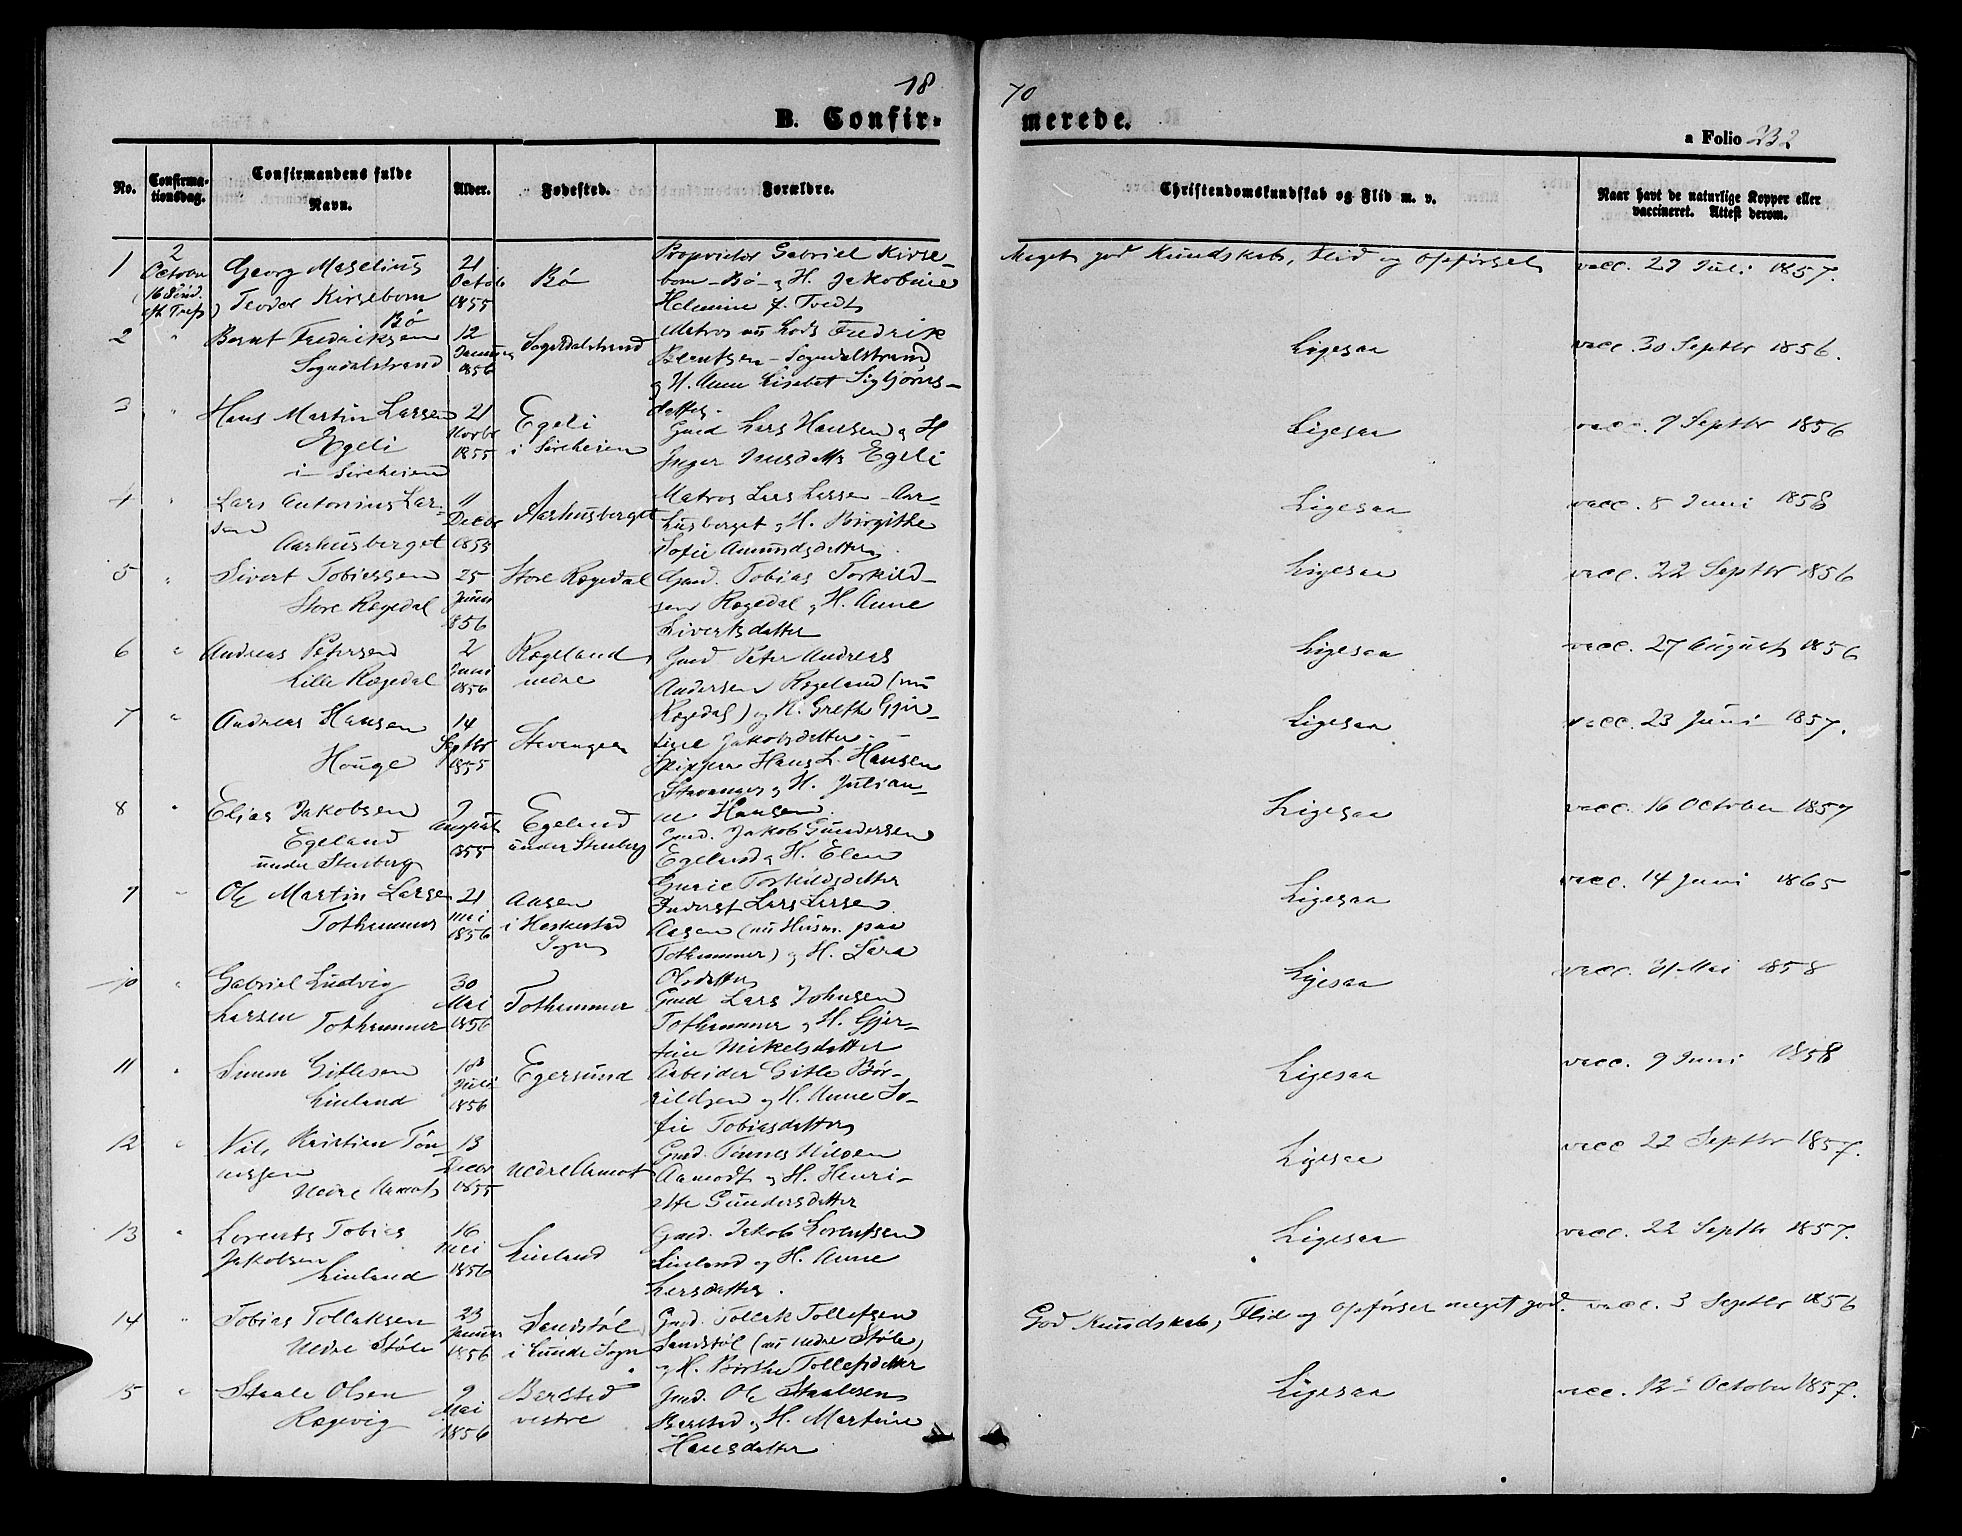 18
70
B. Confir-
merede.
a Folio 232
No.
Confirma-
tionsdag.
Confirmandens fulde
Navn.
Alder.
Fødested.
Forældre.
Christendomskundskab og Flid m. v.
Naar havt de naturlige Kopper eller
vaccineret. Attest derom.
1
2
October
(16 Sönd.
eft. Tref.)
Georg Maselius
Teodor Kirsebom
Bö
21
Octob
1855
Bö
Proprietær Gabriel Kirse-
bom - Bö - og H. Jakobine
Helmine f. Tvedt
Meget god Kundskab, Flid og Opförsel
vacc. 27 Juli 1857.
2
"
Bernt Fredriksen
Sogndalstrand
12
Januar
1856
Sogndalstrand
Matros nu Lods Fredrik
Berntsen - Sogndalstrand
og H. Anne Lisebet Sigbjörns-
datter.
Ligesaa
vacc. 30 Septbr 1856.
3
"
Hans Martin Larsen
Egeli
i Sireheien
21
Novbr
1855
Egeli
i Sireheien
Gmd Lars Hansen og H
Inger Jansdatter Egeli
Ligesaa
vacc. 9 Septbr 1856
4
"
Lars Antonius Lar-
sen
Aarhusberget
11
Decbr
1855
Aarhusberget
Matros Lars Larsen - Aar-
husberget og H. Birgithe
Sofie Amundsdatter
Ligesaa
vacc. 8 Juni 1858
5
"
Sivert Tobiassen
Store Rægedal
25
Juni
1856
Store Rægedal
Gmd. Tobias Torkild-
sen Rægedal og H. Anne
Sivertsdatter
Ligesaa
vacc. 22 Septbr 1856
6
"
Andreas Petersen
Lille Rægedal
2
Juni
1856
Rægeland
nedre
Gmd Peter Andreas
Andersen Rægeland (nu
Rægedal) og H. Grethe Gjer-
tine Jakobsdatter.
Ligesaa
vacc. 27 August 1856
7
"
Andreas Hansen
Houge
14
Septbr
1855
Stavanger
Skipper Hans L. Hansen
Stavanger og H. Julian-
ne Hansen.
Ligesaa
vacc. 23 Juni 1857.
8
"
Elias Jakobsen
Egeland
under Stenberg
7
August
1855
Egeland
under Stenberg
Gmd. Jakob Gundersen
Egeland og H. Elen
Gurie Torkildsdatter
Ligesaa
vacc. 16 October 1857
9
"
Ole Martin Larsen
Tothammer
21
Mai
1856
Aasen
i Heskestad
Sogn
Inderst Lars Larsen
Aasen (nu Husm. paa
Tothammer) og H. Sara
Olsdatter
Ligesaa
vacc. 14 Juni 1865
10
"
Gabriel Ludvig
Larsen
Tothammer
30
Mai
1856
Tothammer
Gmd Lars Johnsen
Tothammer og H. Gjer-
tine Mikelsdatter
Ligesaa
vacc. 31 Mai 1858
11
"
Simon Gitlesen
Linland
18
Juli
1856
Egersund
Arbeider Gitle Bör-
rildsen og H. Anne So-
fie Tobiasdatter
Ligesaa
vacc. 9 Juni 1858
12
"
Nils Kristian Tön-
nessen
Nedre Aamot
13
Decbr
1855
Nedre Aamot
Gmd. Tönnes Nilsen
Aamodt og H. Henri-
ette Gundersdatter
Ligesaa
vacc 22 Septbr 1857.
13
"
Lorents Tobias
Jakobsen
Linland
16
Mai
1856
Linland
Gmd. Jakob Lorentsen
Linland og H. Anne
Larsdatter.
Ligesaa
vacc. 22 Septbr 1857.
14
"
Tobias Tollaksen
Nedre Stöle
23
Januar
1856
Sandstöl
i Lunde Sogn
Gmd. Tollak Tollefsen
Sandstöl (nu nedre Stöle)
og H. Birthe Tollefsdatter
God Kundskab, Flid og Opförsel meget god.
vacc. 3 Septbr 1856
15
"
Staale Olsen
Rægevig
9
Mai
1856
Berstad
vestre
Gmd. Ole Staalesen
Berstad og H. Martine
Hansdatter
Ligesaa
vacc. 12 October 1857.